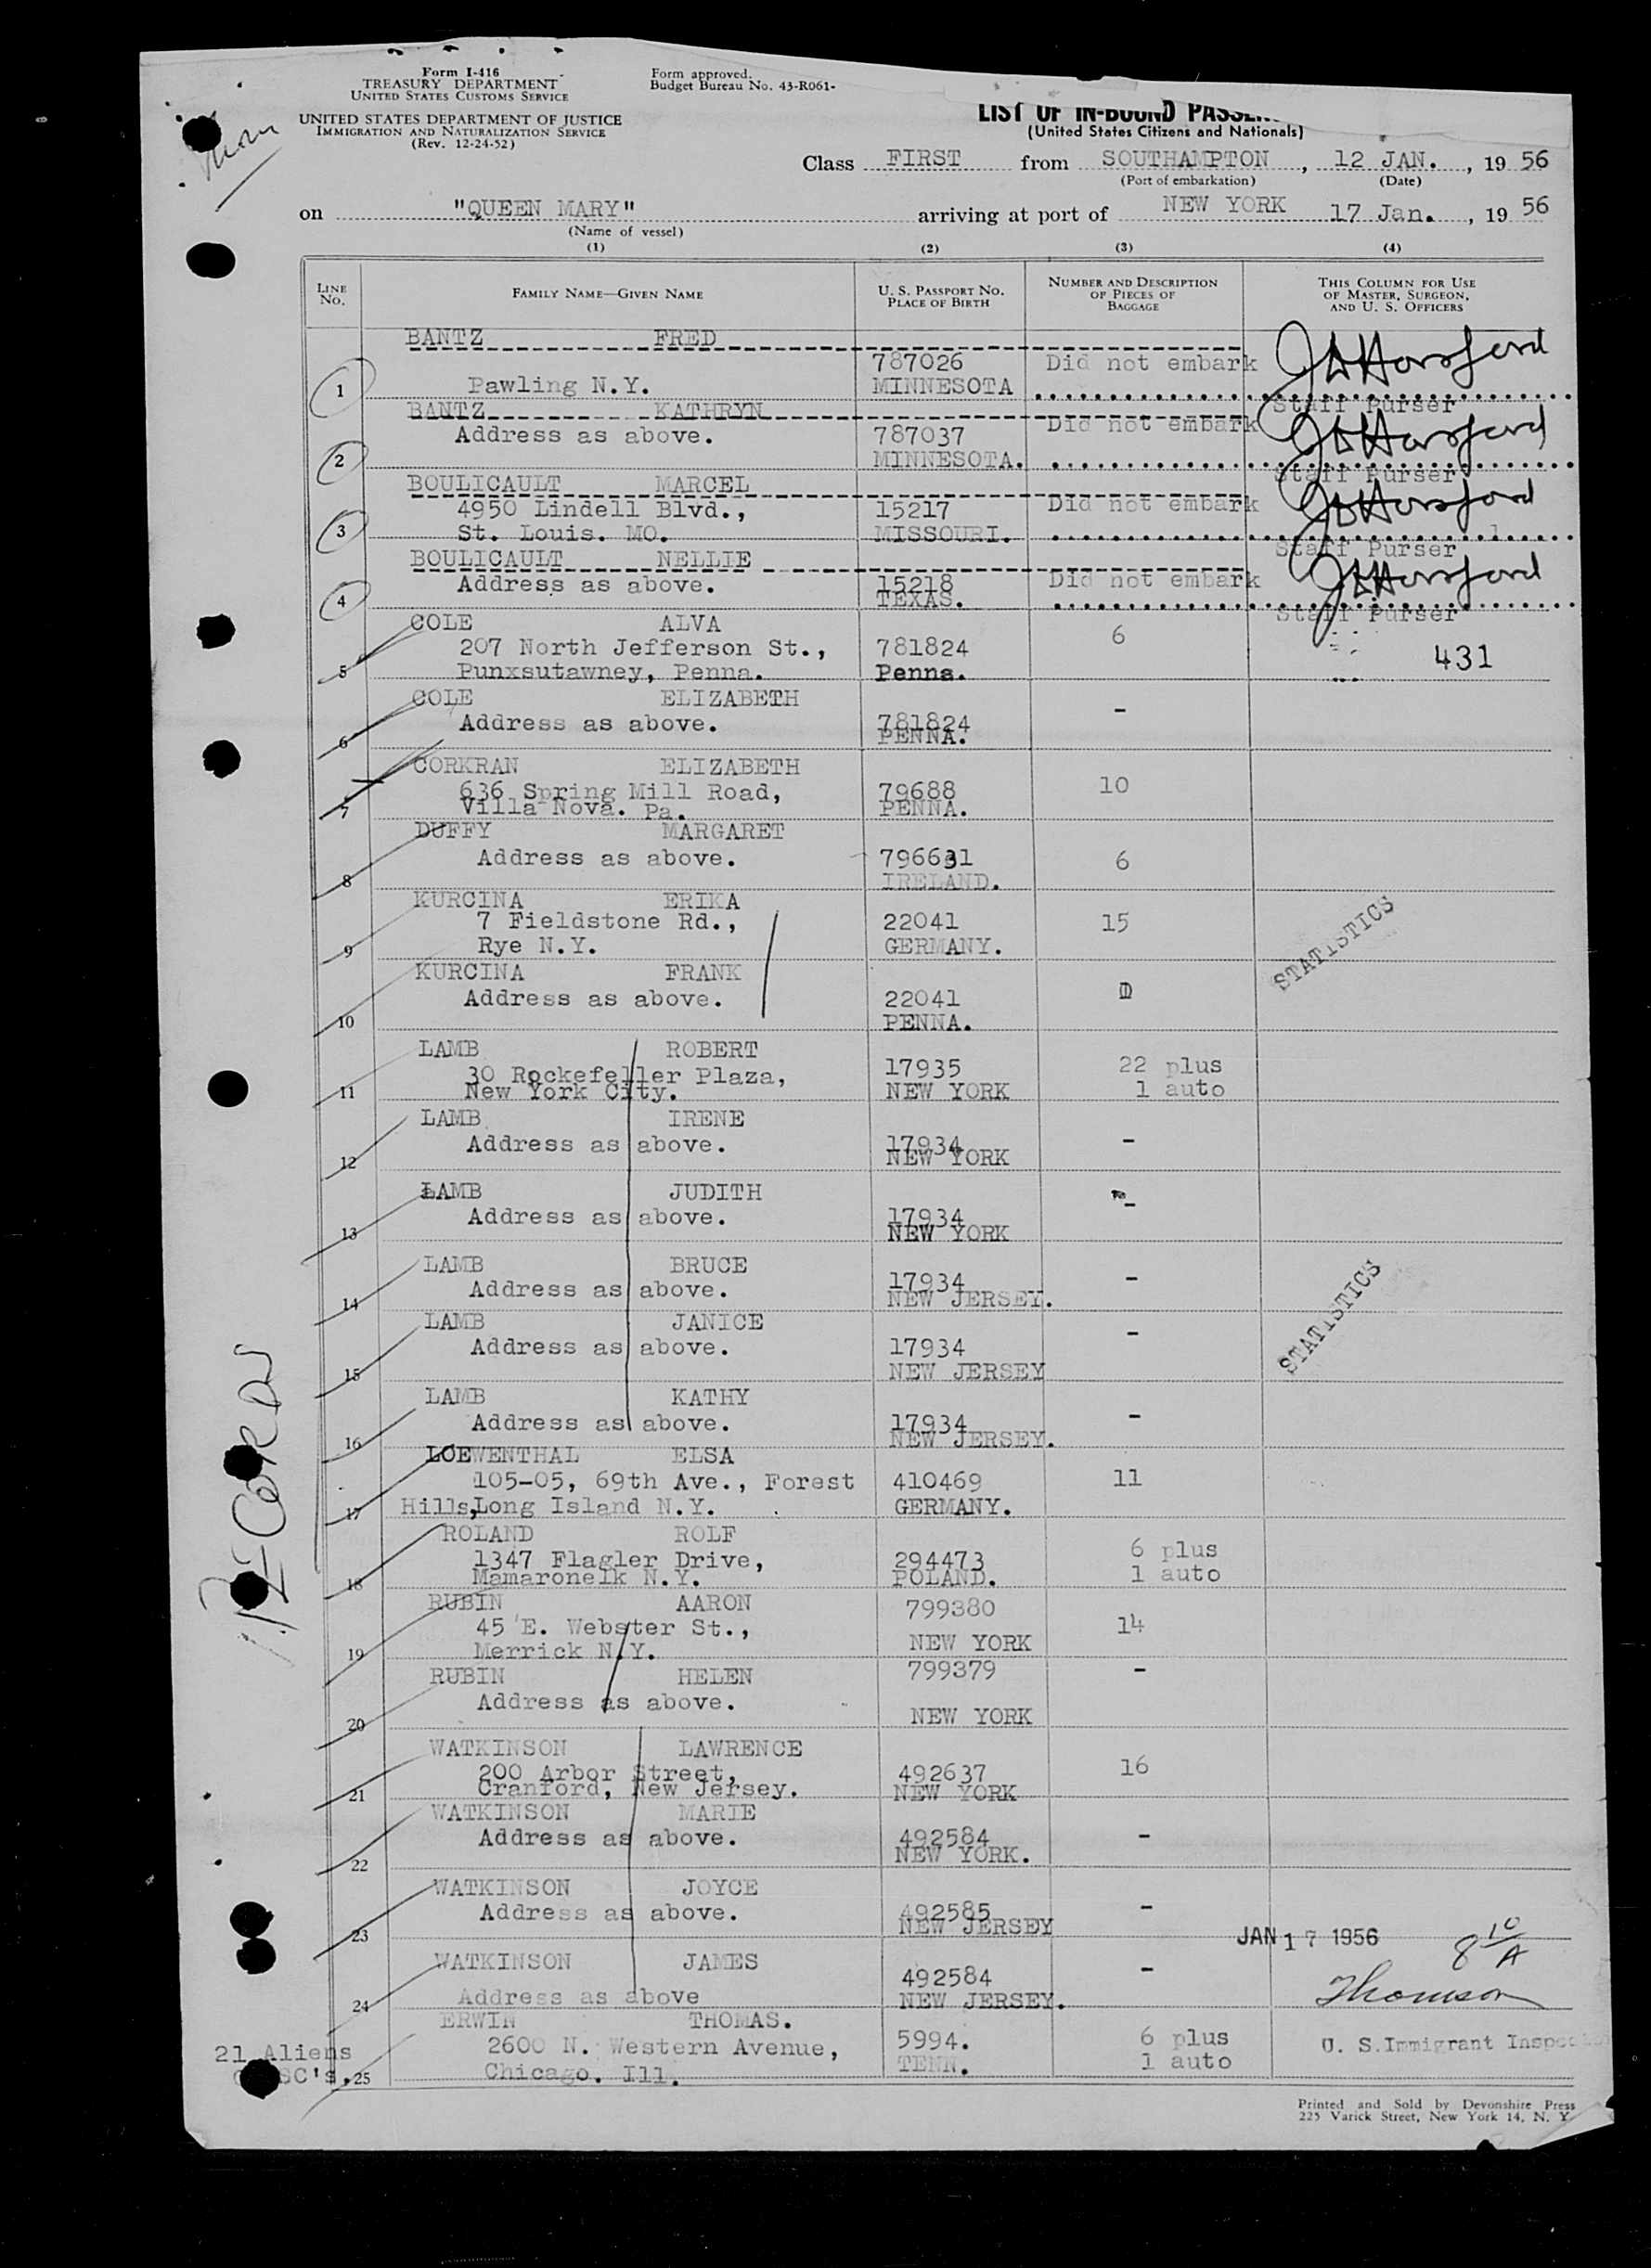 Form I-416
TREASURY DEPARTMENT
UNITED STATES CUSTOMS SERVICE
Form approved.
Budget Bureau No. 43-R061-
UNITED STATES DEPARTMENT OF JUSTICE
IMMIGRATION AND NATURALIZATION SERVICE
(Rev. 12-24-52)
LIST OF IN-BOUND
(United States Citizens and Nationals)
Class FIRST from SOUTHAMPTON, 12 JAN., 19 56
(Port of embarkation) (Date)
on "QUEEN MARY" arriving at port of NEW YORK 17 Jan., 19 56
(Name of vessel)
(1) (2) (3) (4)
LINE No. FAMILY NAME—GIVEN NAME U. S. PASSPORT NO. PLACE OF BIRTH NUMBER AND DESCRIPTION OF PIECES OF BAGGAGE THIS COLUMN FOR USE OF MASTER, SURGEON, AND U. S. OFFICERS
BANTZ FRED
787026 Did not embark
1 Pawling N.Y. MINNESOTA
Staff Purser
BANTZ KATHRYN Did not embark
Address as above. 787037
2 MINNESOTA.
Staff Purser
BOULICAULT MARCEL
4950 Lindell Blvd., 15217 Did not embark
3 St. Louis. MO. MISSOURI.
Staff Purser
BOULICAULT NELLIE
Address as above. 15218 Did not embark
4 TEXAS.
Staff Purser
COLE ALVA 6
207 North Jefferson St., 781824 431
5 Punxsutawney, Penna. Penna.
COLE ELIZABETH -
Address as above. 781824
6 PENNA.
CORKRAN ELIZABETH
636 Spring Mill Road, 79688 10
7 Villa Nova. Pa. PENNA.
DUFFY MARGARET
Address as above. 796631 6
8 IRELAND.
KURCINA ERIKA
7 Fieldstone Rd., 22041 15
9 Rye N.Y. GERMANY.
STATISTICS
KURCINA FRANK
Address as above. 22041
10 PENNA.
LAMB ROBERT
30 Rockefeller Plaza, 17935 22 plus
11 New York City. NEW YORK 1 auto
LAMB IRENE
Address as above. 17934 -
12 NEW YORK
LAMB JUDITH
Address as above. 17934 -
13 NEW YORK
LAMB BRUCE
Address as above. 17934 -
14 NEW JERSEY.
LAMB JANICE
Address as above. 17934 -
15 NEW JERSEY
STATISTICS
LAMB KATHY
Address as above. 17934 -
16 NEW JERSEY.
LOEWENTHAL ELSA
105-05, 69th Ave., Forest 410469 11
17 Hills, Long Island N.Y. GERMANY.
ROLAND ROLF
1347 Flagler Drive, 294473 6 plus
18 Mamaronelk N.Y. POLAND. 1 auto
RUBIN AARON 799380
45 E. Webster St., 14
19 Merrick N.Y. NEW YORK
RUBIN HELEN 799379 -
Address as above.
20 NEW YORK
WATKINSON LAWRENCE
200 Arbor Street, 492637 16
21 Cranford, New Jersey. NEW YORK
WATKINSON MARIE
Address as above. 492584 -
22 NEW YORK.
WATKINSON JOYCE
Address as above. 492585 -
23 NEW JERSEY
JAN 17 1956 8 10/A
WATKINSON JAMES
492584 -
24 Address as above NEW JERSEY.
Thomson
ERWIN THOMAS.
2600 N. Western Avenue, 5994. 6 plus
25 Chicago. Ill. TENN. 1 auto
U. S. Immigrant
21 Aliens
Printed and Sold by Devonshire Press
225 Varick Street, New York 14, N. Y.